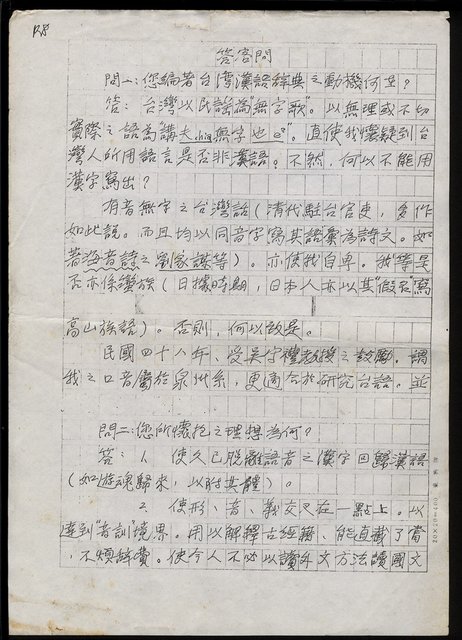 答客問
問一:您編著台湾漢語辞典之動機何在?
答:台灣以民謠為無字歌"。以無理或不切
實際之語為"講 無字 也 e"。直使我懷疑到台
灣人所用語言是否非漢語。不然,何以不能用
漢字寫出?
有音無字之台灣話(清代駐台官吏,多作
如此說。而且均以同音字寫其語彙為詩文。如
著海音詩之劉家謀等)。亦使我自卑。我等是
否亦係 族(日據時期,日本人亦以其"假名寫
高山族語)。否則,何以故是。
民國四十八年、受吳守禮教授之鼓勵。謂
我之口音屬於泉州系,更適合於研究台語。並
問二:您所懷抱之理想為何?
答:1. 使久已脫離語音之漢字回歸漢語
(如遊魂歸來,以附其體)。
2. 使形、音、義交叉在一點上。以
達到"音訓"境界。用以解釋古經籍、能直截了當
,不煩辭費。使今人不必以讀外文方法讀國文
20×20=400